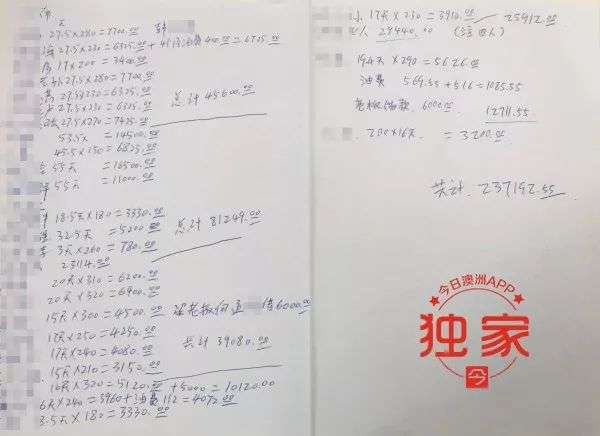 天
27.5×280=7700.00
27.5×230=6325.00+4月油费400.00=6725.00
17×200=3400.00
27.5×280=7700.00
27.5×230=6325.00
27.5×230=6325.00 总计45600.00
27.5×270=7425.00
53.5天=14500.00
45.5×150=6825.00
55天=16500.00
55天=11000.00
18.5天×180=3330.00
32.5天=5200.00 总计81249.00
3天×260=780.00
23114.00
20天×310=6200.00
20天×320=6400.00
15天×300=4500.00 借6000.00
17天×250=4250.00
17天×240=4080.00 共计39080.00
15天×210=3150.00
16天×320=5120.00+5000=10120.00
6天×240=3960+油费112=4072.00
3.5天×180=3330.00
17天×230=3910.00 25912.00
29440.00
194天×290=56260.00
油费 569.55+516=1085.55
老板借款.6000.00 12711.55
200×16天.=3200.00
共计.237192.55
今日澳洲APP
独家
今